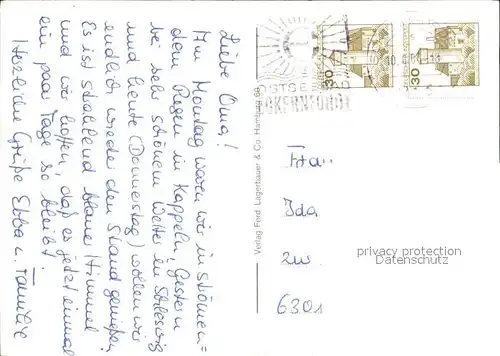 Liebe Oma!
Am Montag waren wir in strömen=
dem Regen in Kappeln, Gestern
bei sehr schönem Wetter in Schleswig
und heute (Donnerstag) wollen wir
endlich wieder den Strand genießen.
Es ist strahlend blauer Himmel
und wir hoffen, daß es jetzt einmal
ein paar Tage so bleibt.
Herzliche Grüße Ebba u. Familie
Verlag Ferd. Lagerbauer & Co. Hamburg
OSTSEE
ECKERNFÖRDE
30
30
Frau
Ida
zw.
6301
privacy protection
www.oldthing.de